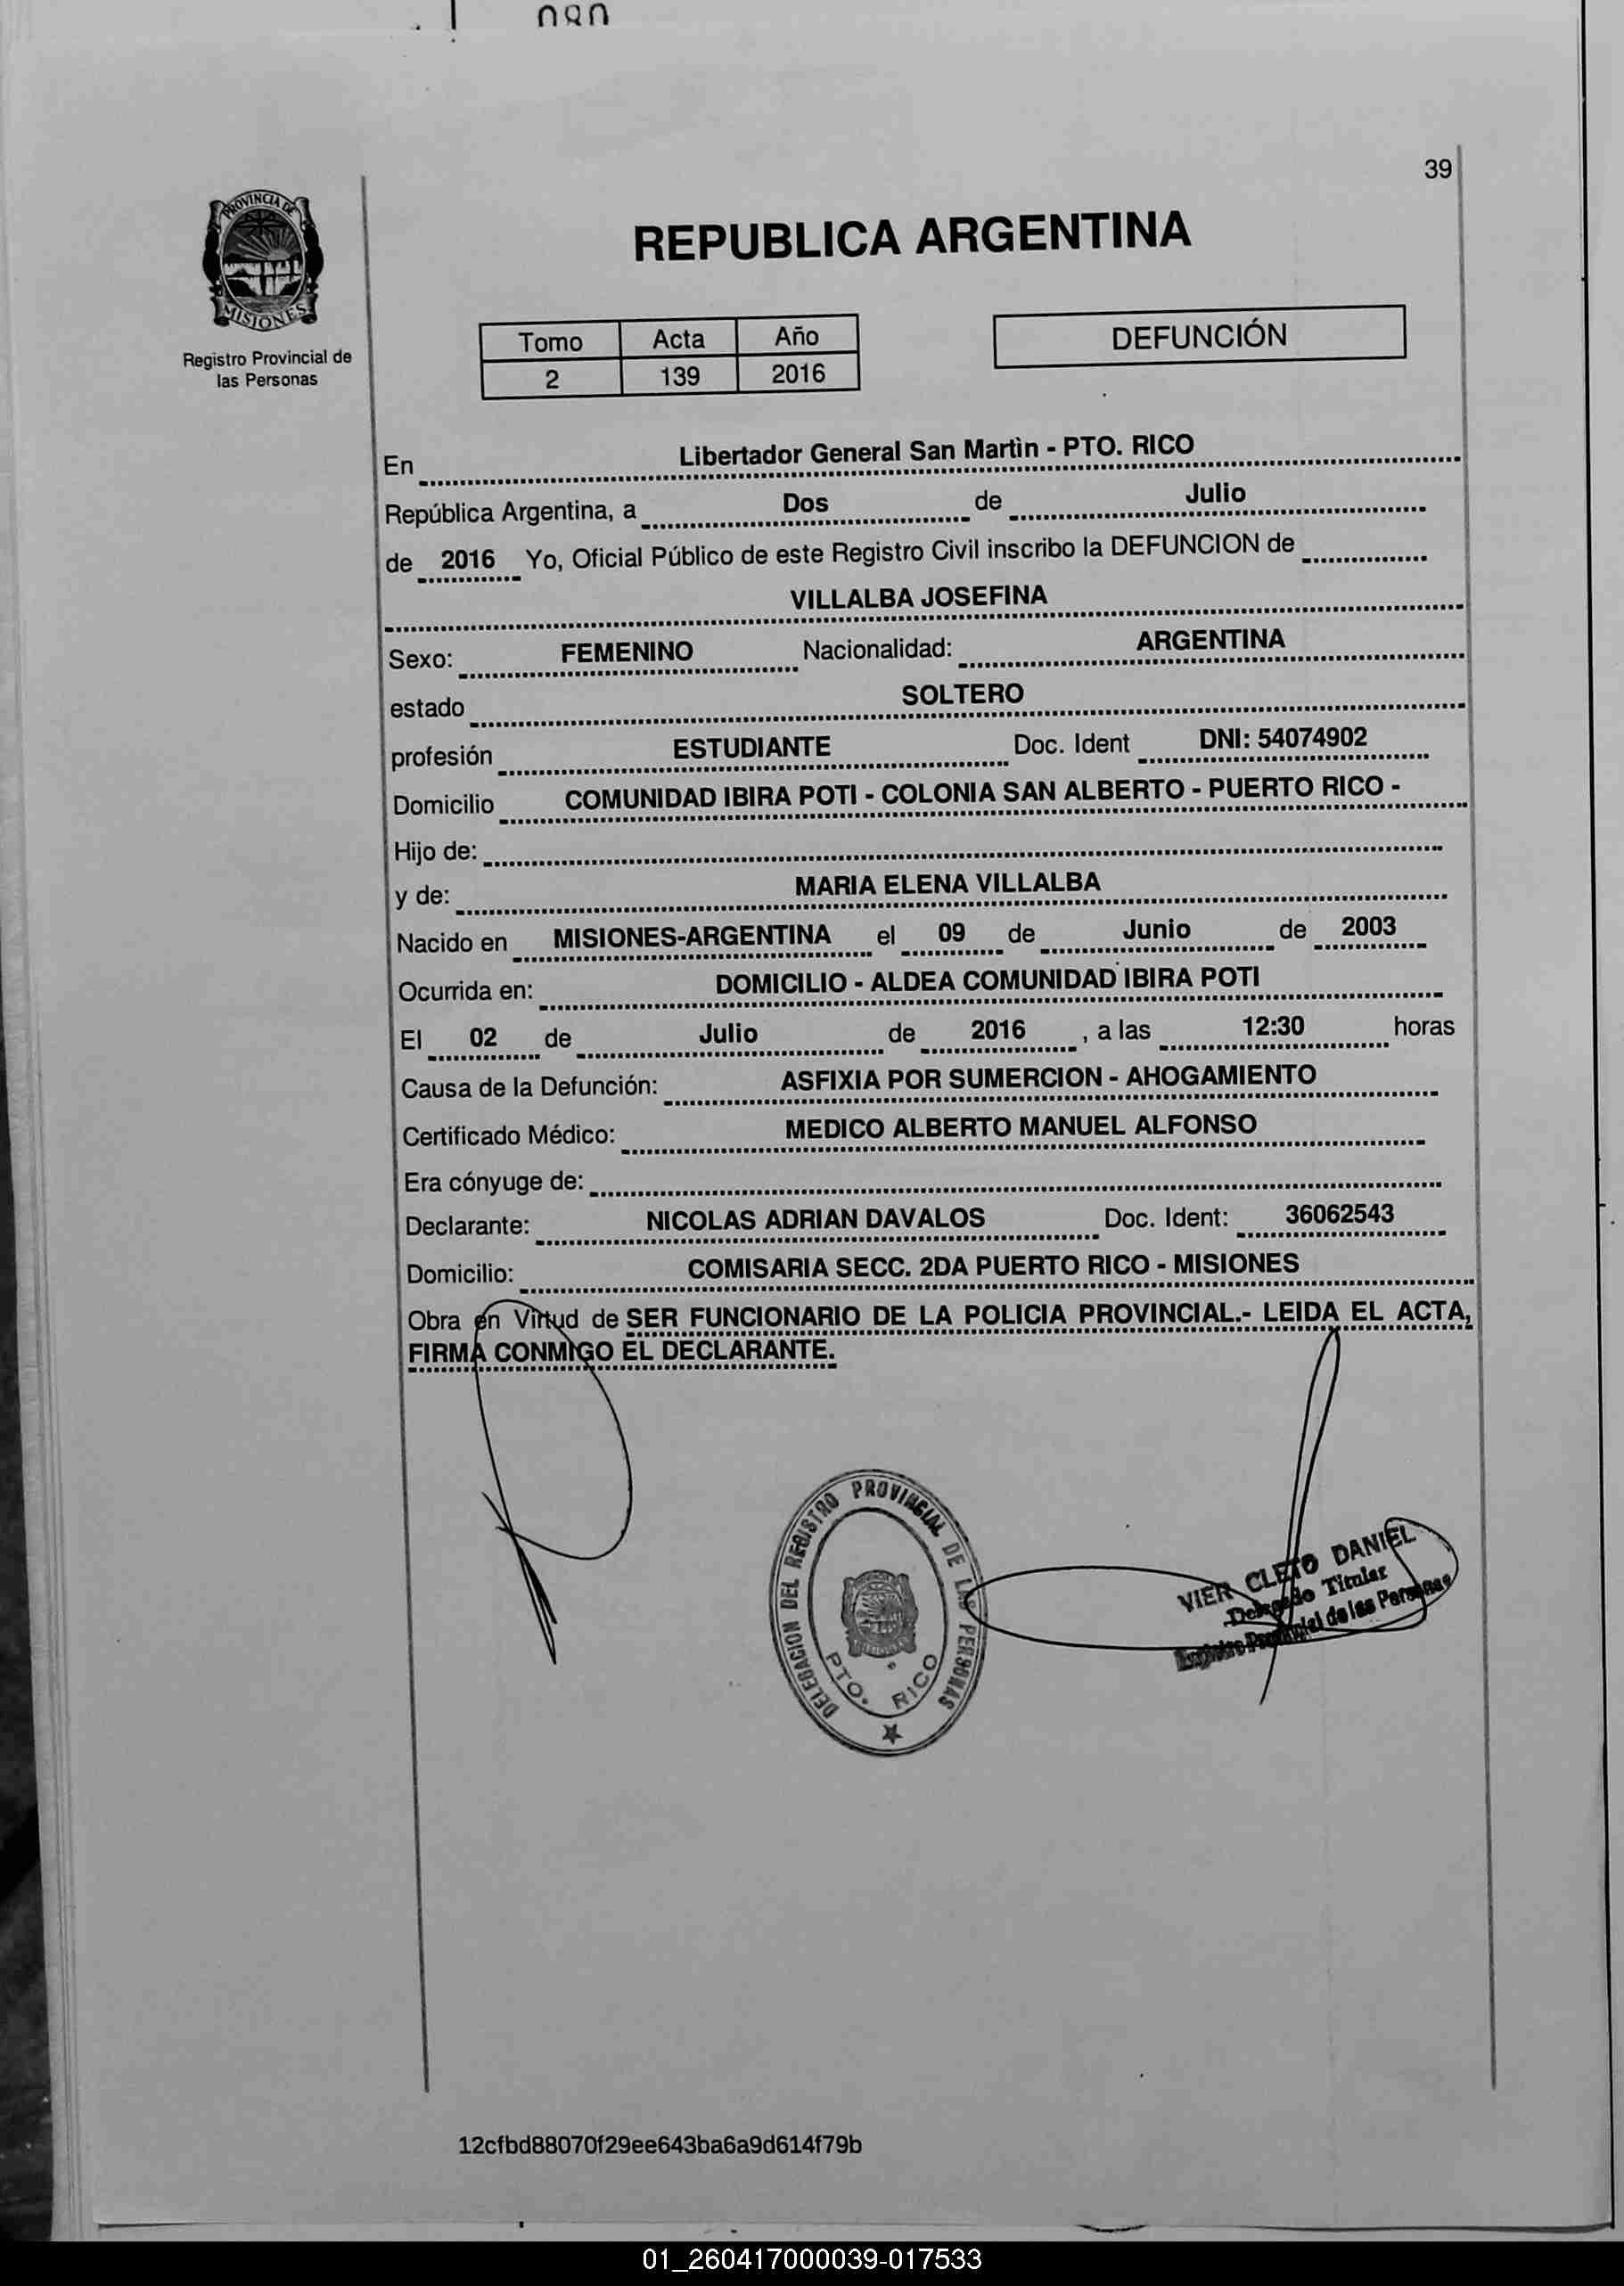 080
39
PROVINCIA DE
MISIONES
Registro Provincial de
las Personas
REPUBLICA ARGENTINA
Tomo Acta Año
2 139 2016
DEFUNCIÓN
En Libertador General San Martìn - PTO. RICO
República Argentina, a Dos de Julio
de 2016 Yo, Oficial Público de este Registro Civil inscribo la DEFUNCION de
VILLALBA JOSEFINA
Sexo: FEMENINO Nacionalidad: ARGENTINA
estado SOLTERO
profesión ESTUDIANTE Doc. Ident DNI: 54074902
Domicilio COMUNIDAD IBIRA POTI - COLONIA SAN ALBERTO - PUERTO RICO -
Hijo de:
y de: MARIA ELENA VILLALBA
Nacido en MISIONES-ARGENTINA el 09 de Junio de 2003
Ocurrida en: DOMICILIO - ALDEA COMUNIDAD IBIRA POTI
El 02 de Julio de 2016 , a las 12:30 horas
Causa de la Defunción: ASFIXIA POR SUMERCION - AHOGAMIENTO
Certificado Médico: MEDICO ALBERTO MANUEL ALFONSO
Era cónyuge de:
Declarante: NICOLAS ADRIAN DAVALOS Doc. Ident: 36062543
Domicilio: COMISARIA SECC. 2DA PUERTO RICO - MISIONES
Obra en Virtud de SER FUNCIONARIO DE LA POLICIA PROVINCIAL.- LEIDA EL ACTA,
FIRMA CONMIGO EL DECLARANTE.
DELEGACION DEL REGISTRO PROVINCIAL DE LAS PERSONAS
PTO. RICO
VIER CLETO DANIEL
Delegado Titular
Registro Provincial de las Personas
12cfbd88070f29ee643ba6a9d614f79b
01_260417000039-017533